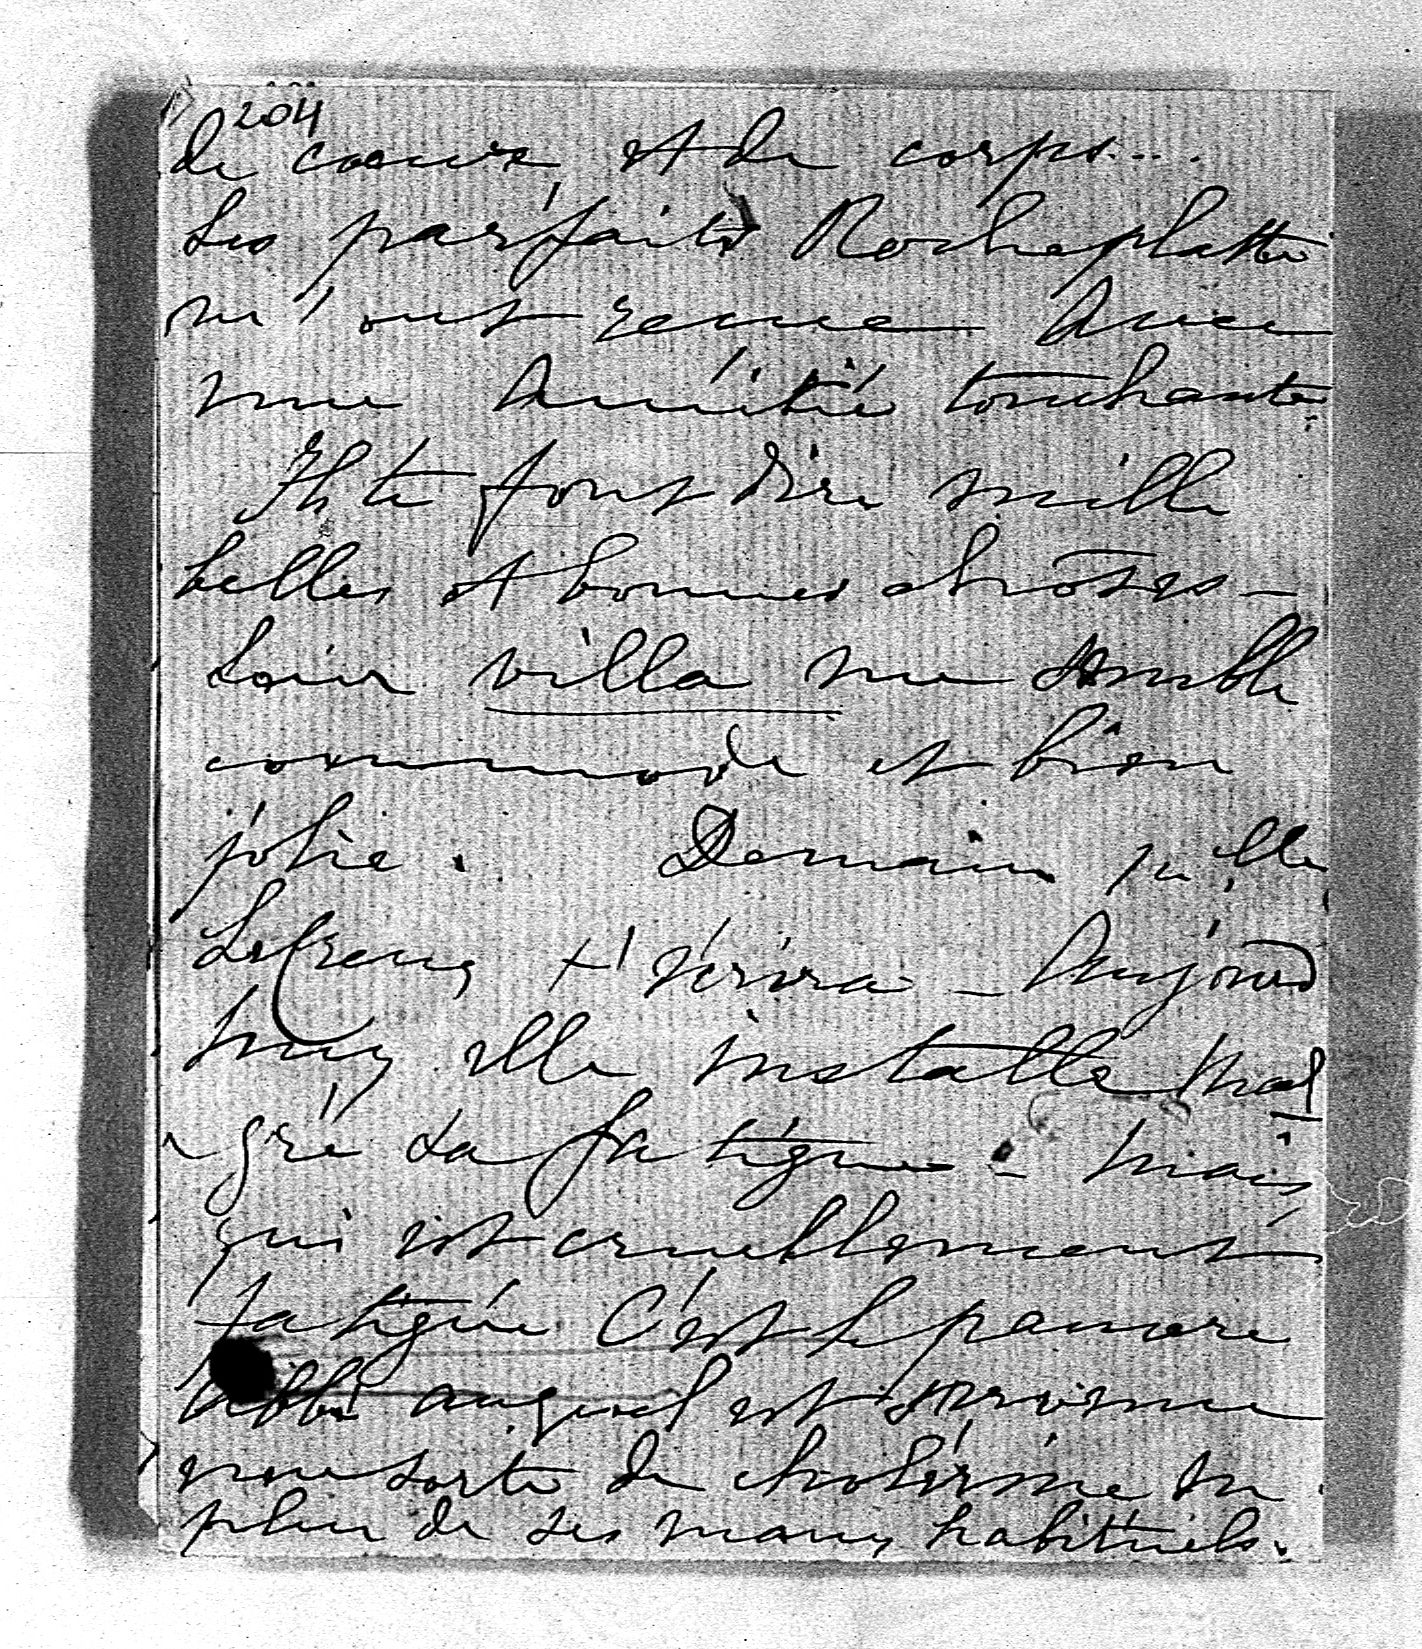 204
de cœurs, et de corps....
Les parfaits Rocheplatte
m'ont reçue avec
une amitié touchante.
Ils te font dire mille
belles et bonnes choses —
Leur villa me semble
commode et bien
jolie. Demain Mlle
t'écrira — Aujourd
huy elle installe mal
gré sa fatigue — Mais
qui est cruellement
fatigué C'est le pauvre
abbé auquel est survenue
une sorte de cholérine en
plus de ses maux habituels.